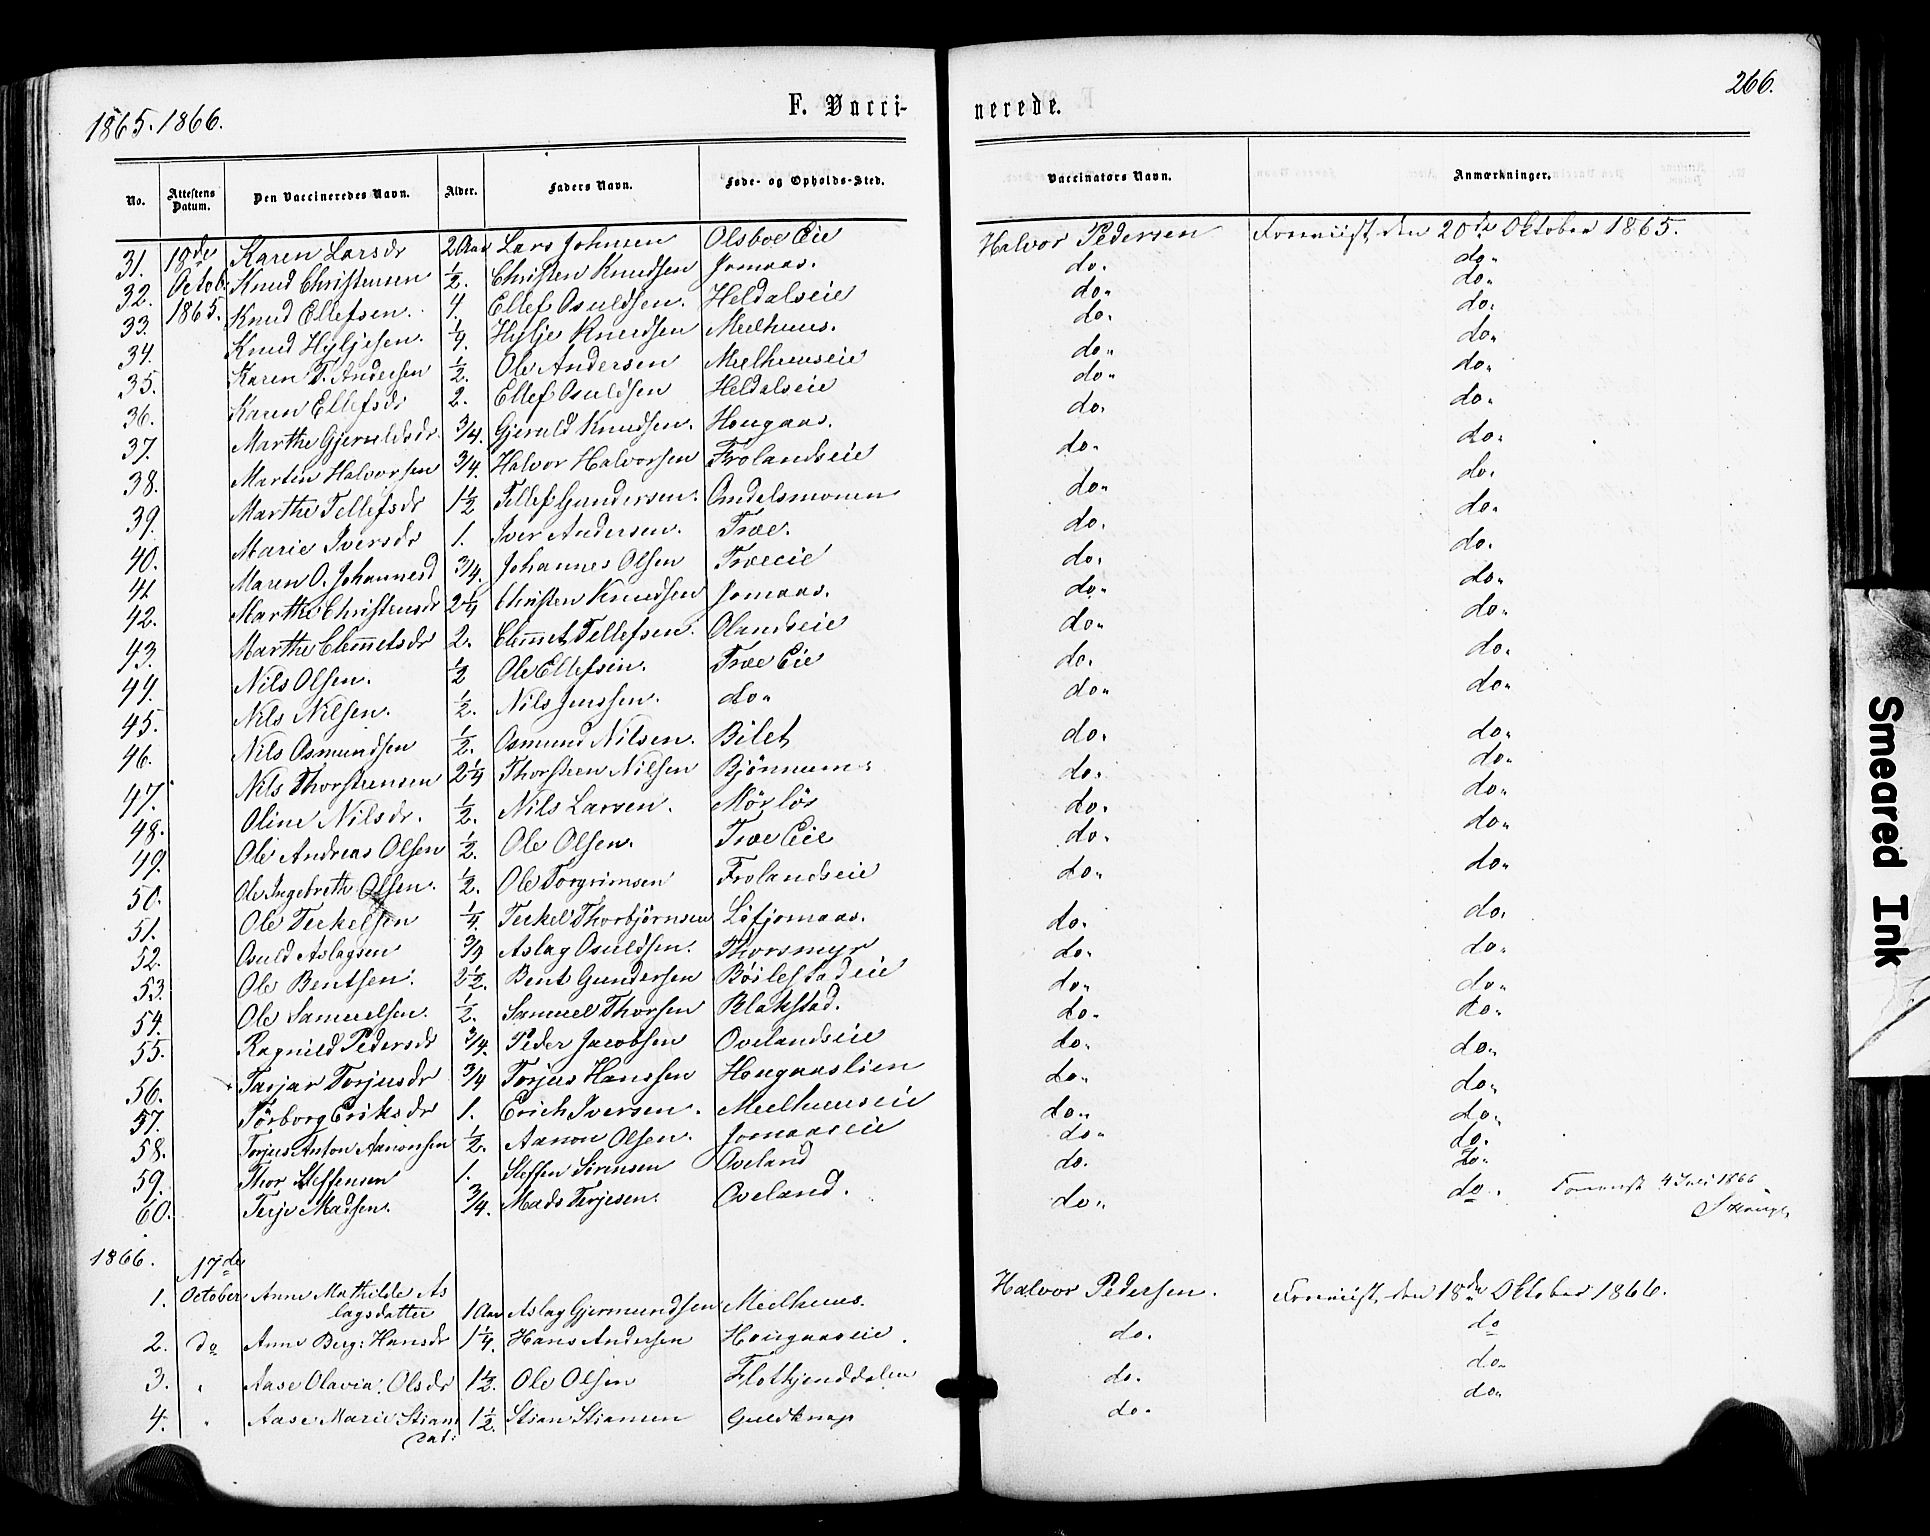 1865. 1866.
F. Vacci-
nerede.
266.
No. Attestens Datum. Den Vaccineredes Navn. Alder. Faders Navn. Føde- og Opholds-Sted. Vaccinatørs Navn. Anmærkninger.
31. 18de Karen Larsdr 2 Aar Lars Johnsen Olsboe Eie Halvor Pedersen Foreviist den 20de Oktober 1865.
32. Octob. Knud Christensen 1/2. Christen Knudsen Jomaas. do. do.
33. 1865. Knud Ellefsen. 4. Ellef Osuldsen. Heldalseie do. do.
34. Knud Hyljesen. 1/4. Hylje Knudsen Mælhuus. do. do.
35. Karen T. Andersen 1/2. Ole Andersen Mælhuuseie do. do.
36. Karen Ellefsdr 2. Ellef Osuldsen Heldalseie do. do.
37. Marthe Gjeruldsdr. 3/4. Gjeruld Knudsen. Hougaas. do. do.
38. Marten Halvorsen 3/4. Halvor Halvorsen Frolandseie do. do.
39. Marthe Tellefsdr 1 1/2 Tellef Gundersen. Omdelsmoen do. do.
40. Marie Iversdr 1. Iver Andersen. Træ. do. do.
41 Maren O. Johannesd 3/4. Johannes Olsen Træeie do. do.
42. Marthe Christensdr 2 1/4 Christen Knudsen Jomaas. do. do.
43. Marthe Clemetsdr 2. Clemet Tellefsen. Olandseie do. do.
44. Nils Olsen. 1/2 Ole Ellefsen. Træ Eie do. do.
45. Nils Nilsen. 1/2. Nils Jenssen. do. do. do.
46. Nils Osmundsen 1/2. Osmund Nilsen. Bilet do. do.
47. Nils Thorstensen 2 1/4 Thorsten Nilsen Bjønnum. do. do.
48. Oline Nilsdr. 1/2. Nils Larsen. Mørløs do. do.
49. Ole Andreas Olsen 1/2. Ole Olsen. Træ Eie do. do.
50. Ole Ingebreth Olsen. 1/2. Ole Torgrimsen Frolandseie do. do.
51. Ole Terkelsen 1/4. Terkel Thorbjørnsen Løfjomaas. do. do.
52. Osuld Aslagsen 3/4 Aslag Osuldsen. Thorsmyr do. do.
53. Ole Bentsen. 2 1/2. Bent Gundersen Bøilestadeie do. do.
54. Ole Samuelsen. 1/2. Samuel Thorsen Blakstad. do. do.
55. Ragnild Pedersdr 3/4. Peder Jacobsen Ovelandseie do. do.
56. Tarjar Torjusdr 3/4 Torjus Hanssen Hougaaslien do. do.
57. Torborg Eriksdr 1. Erich Iversen. Mælhuuseie do. do.
58. Torjus Anton Aanonsen 1/2. Aanon Olsen. Jomaaseie do. do.
59. Thor Steffensen 1. Steffen Sørensen Oveland do. do.
60. Terje Madsen. 3/4. Mads Terjesen. Oveland. do. do. 4 Juli 1866
1866. 17de
1. October Anne Mathilde As
lagsdatter 1 Aar Aslag Gjermundsen Mælhuus. Halvor Pedersen. Foreviist den 18de Oktober 1866.
2. do Anne Berg: Hansdr 1 1/4. Hans Andersen Hougaaseie. do. do
3. " Aase Olavia. Olsdr 1 1/2. Ole Olsen Flotkjenddalen do. do.
4. " Aase Marie Stians
dat: 1 1/2. Stian Stiansen Guldknap do. do.
Smeared Ink